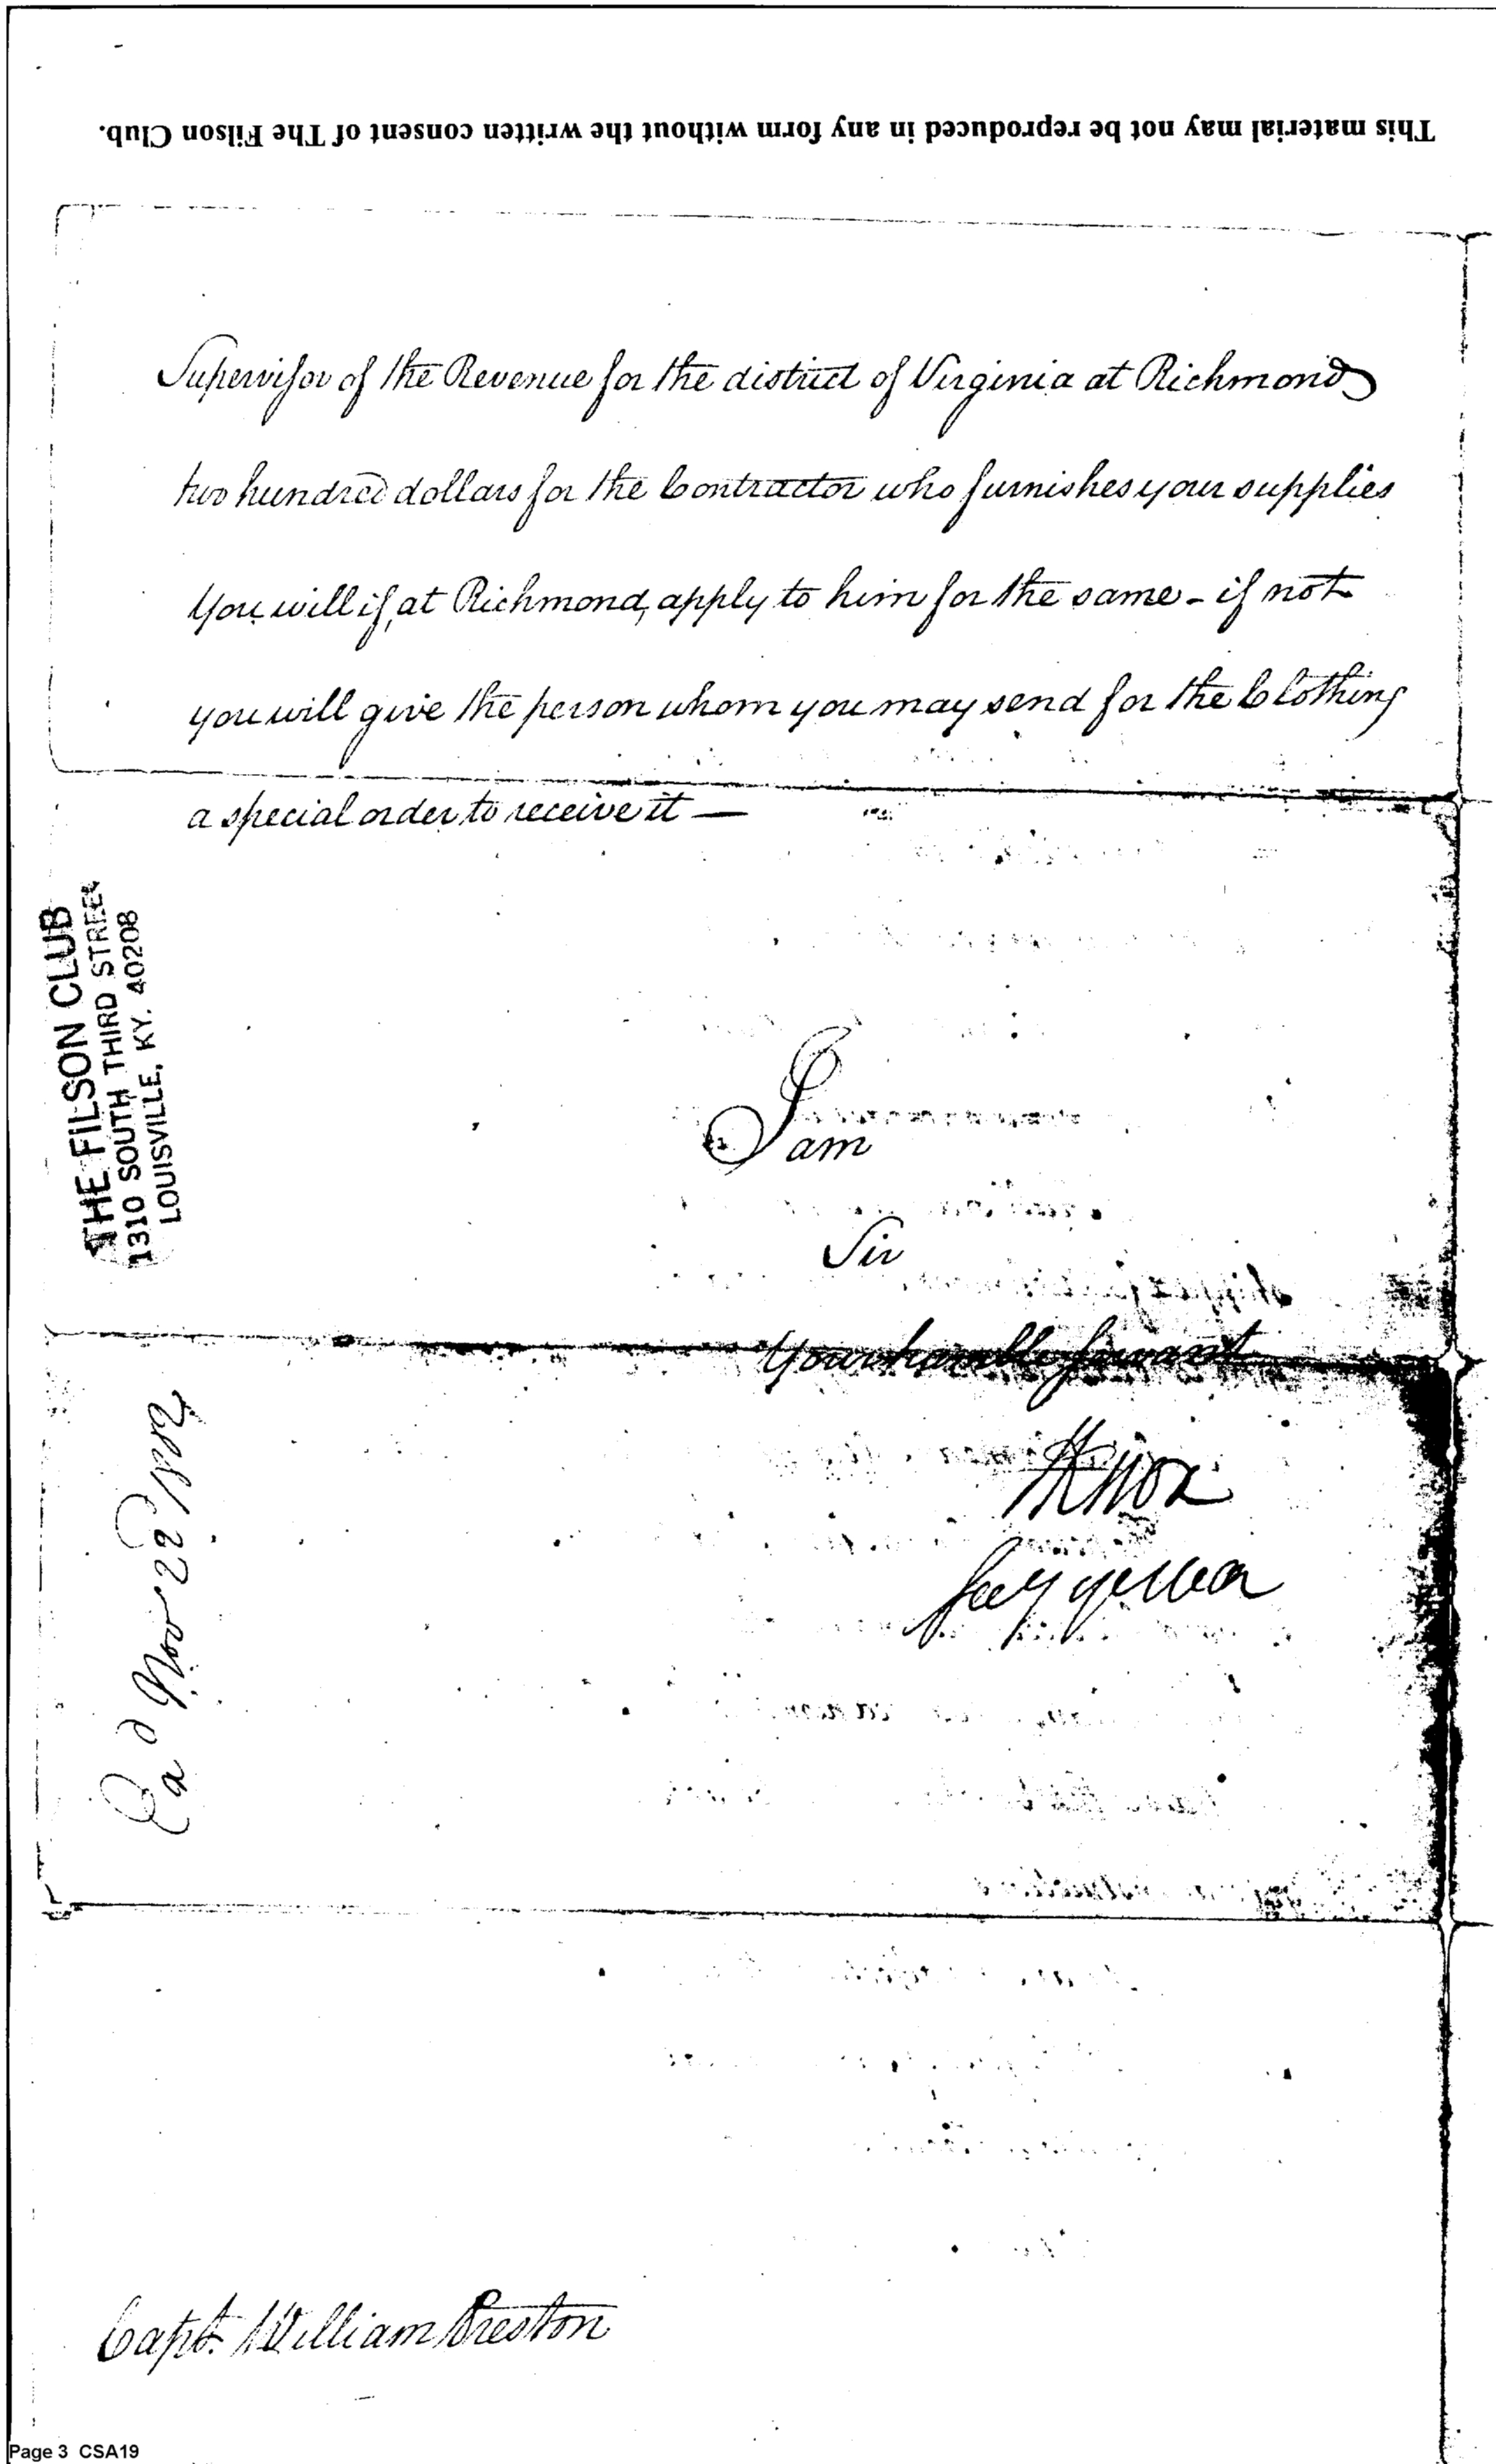 This material may not be reproduced in any form without the written consent of The Filson Club.
Supervisor of the Revenue for the district of Virginia at Richmond
two hundred dollars for the Contractor who furnishes your supplies
You will if, at Richmond, apply to him for the same - if not
you will give the person whom you may send for the Clothing
a special order to receive it —
THE FILSON CLUB
1310 SOUTH THIRD STREET
LOUISVILLE, KY. 40208
I am
Sir
Your humble Servant
HKnox
Secy of war
Nov 22d
Capt. William Preston
Page 3 CSA19